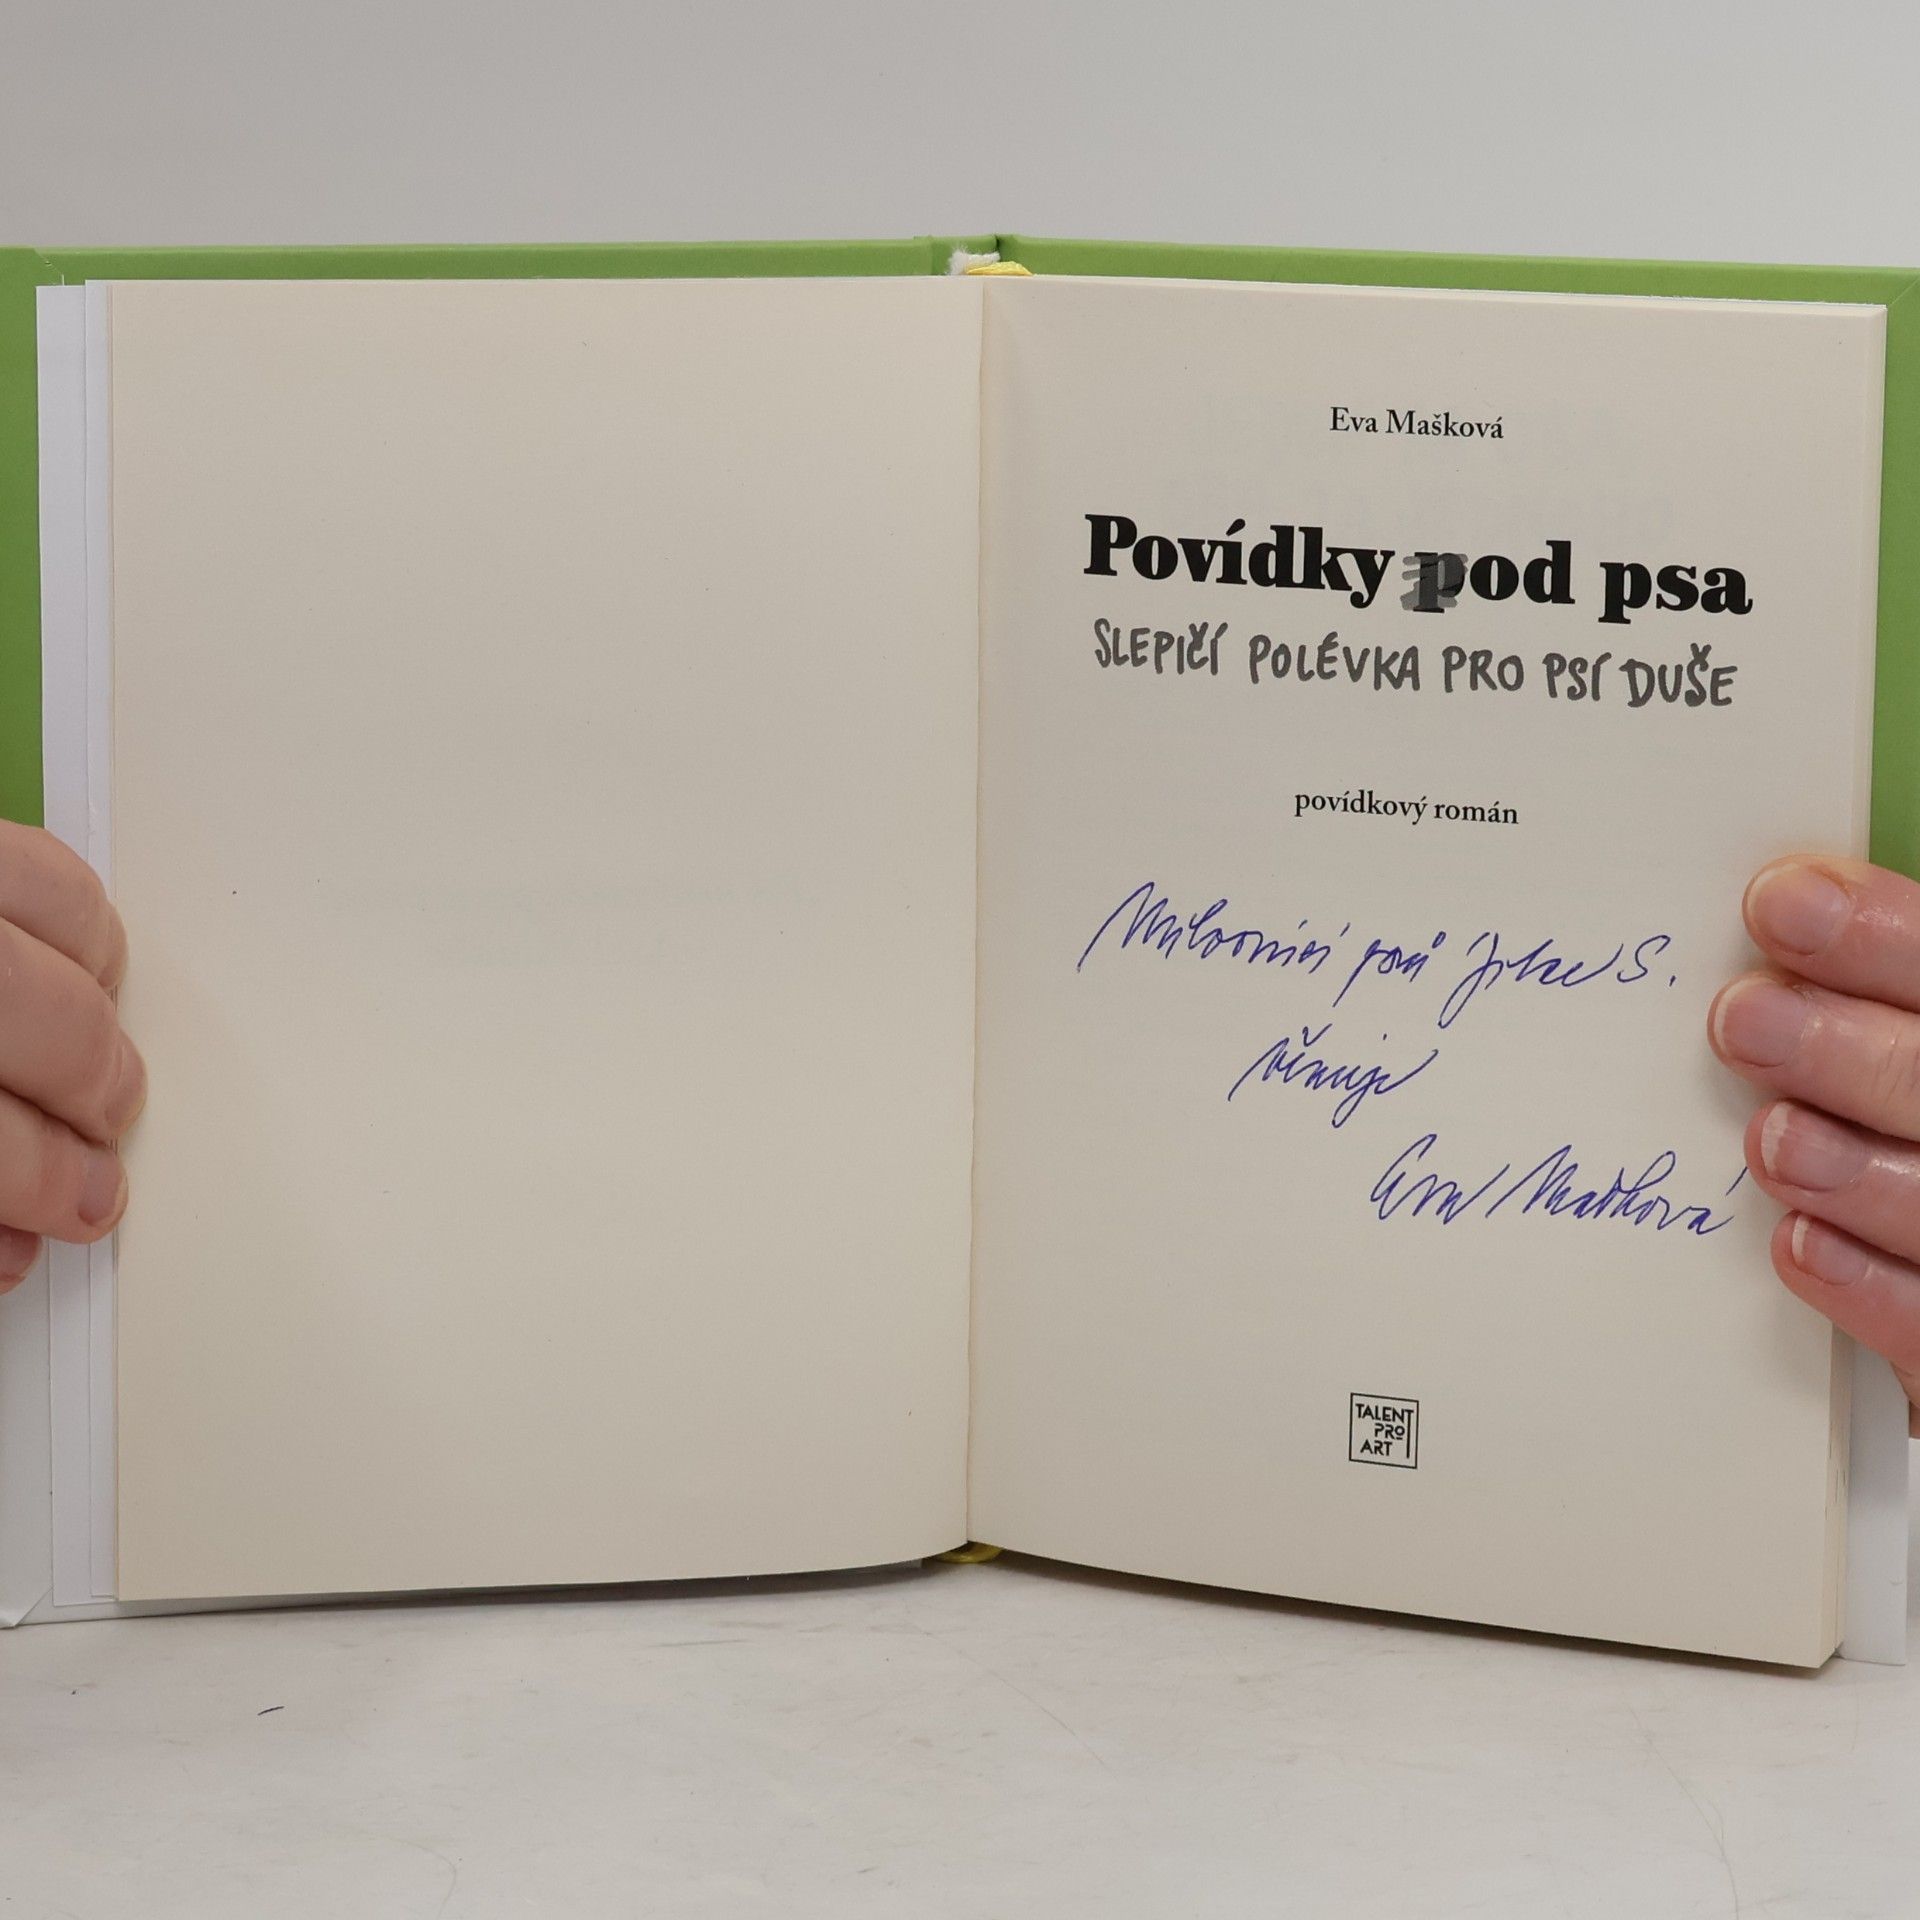 Eva Mašková
Povídky pod psa
SLEPIČÍ POLÉVKA PRO PSÍ DUŠE
povídkový román
Milovnici psů Jitce S.
věnuje
Eva Mašková
TALENT
PRO
ART